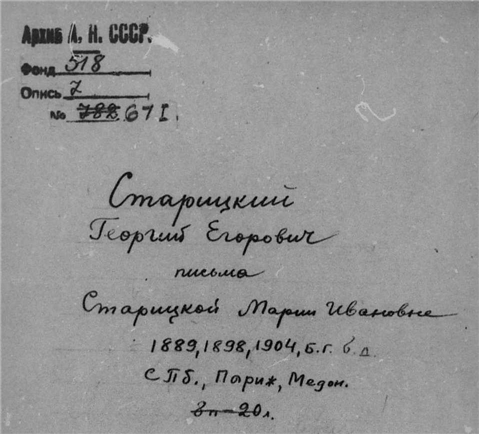 Архив А. Н. СССР.
Фонд 518
Опись 7
No 782 67 I.
Старицкий
Георгий Егорович
письма
Старицкой Марии Ивановне
1889, 1898, 1904, б.г. б.д.
СПб., Париж, Медон.
20 л.